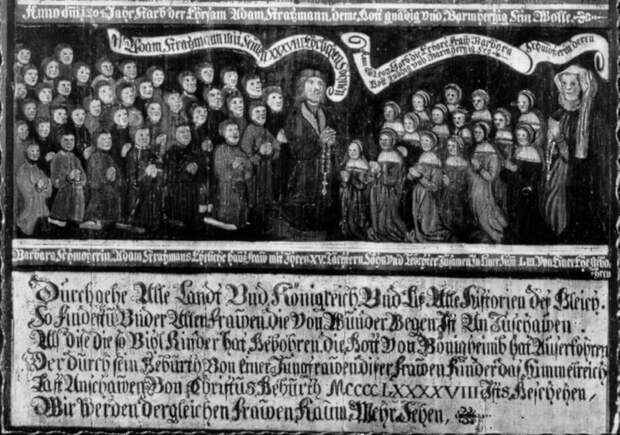 Anno dm 1504 Jahr starb der Ehrsam Adam Stratzmann, deme Gott gnädig Vnd Barmherzig Sein Wolle.
Adam Stratzmann mit Seinen XXXVIII Ehelichen Söhnen
Starb die Erbare Frau Barbara Schmotzerin deren
Gott gnädig vnd Barmherzig Sey
Barbara Schmotzerin, Adam Stratzmans Eheliche Hausfraw mit Jhren XV Töchtern, Söhn Vnd Töchter Zusamen In Einer Sum LIII Von Einer Ehe Gebohren
Durchgehe Alle Landt Vnd Königreich Vnd Liß Alle Historien der Gleich.
So findestu Vnder Allen Frawen, die Von Wunder Wegen Ist Anzuschawen
Als dise die so Vihl Kinder hat Gebohren, die Gott Von Bönigheimb hat Auserkohren
Der durch sein Gebürth Von einer Jungfrawen diser Frawen Kinder das Himmelreich
Laß Anschawen, Von Christus Gebürth MCCCCLXXXXVIII Ists Geschehen,
Wir werden dergleichen Frawen, Kaum Mehr Sehen,